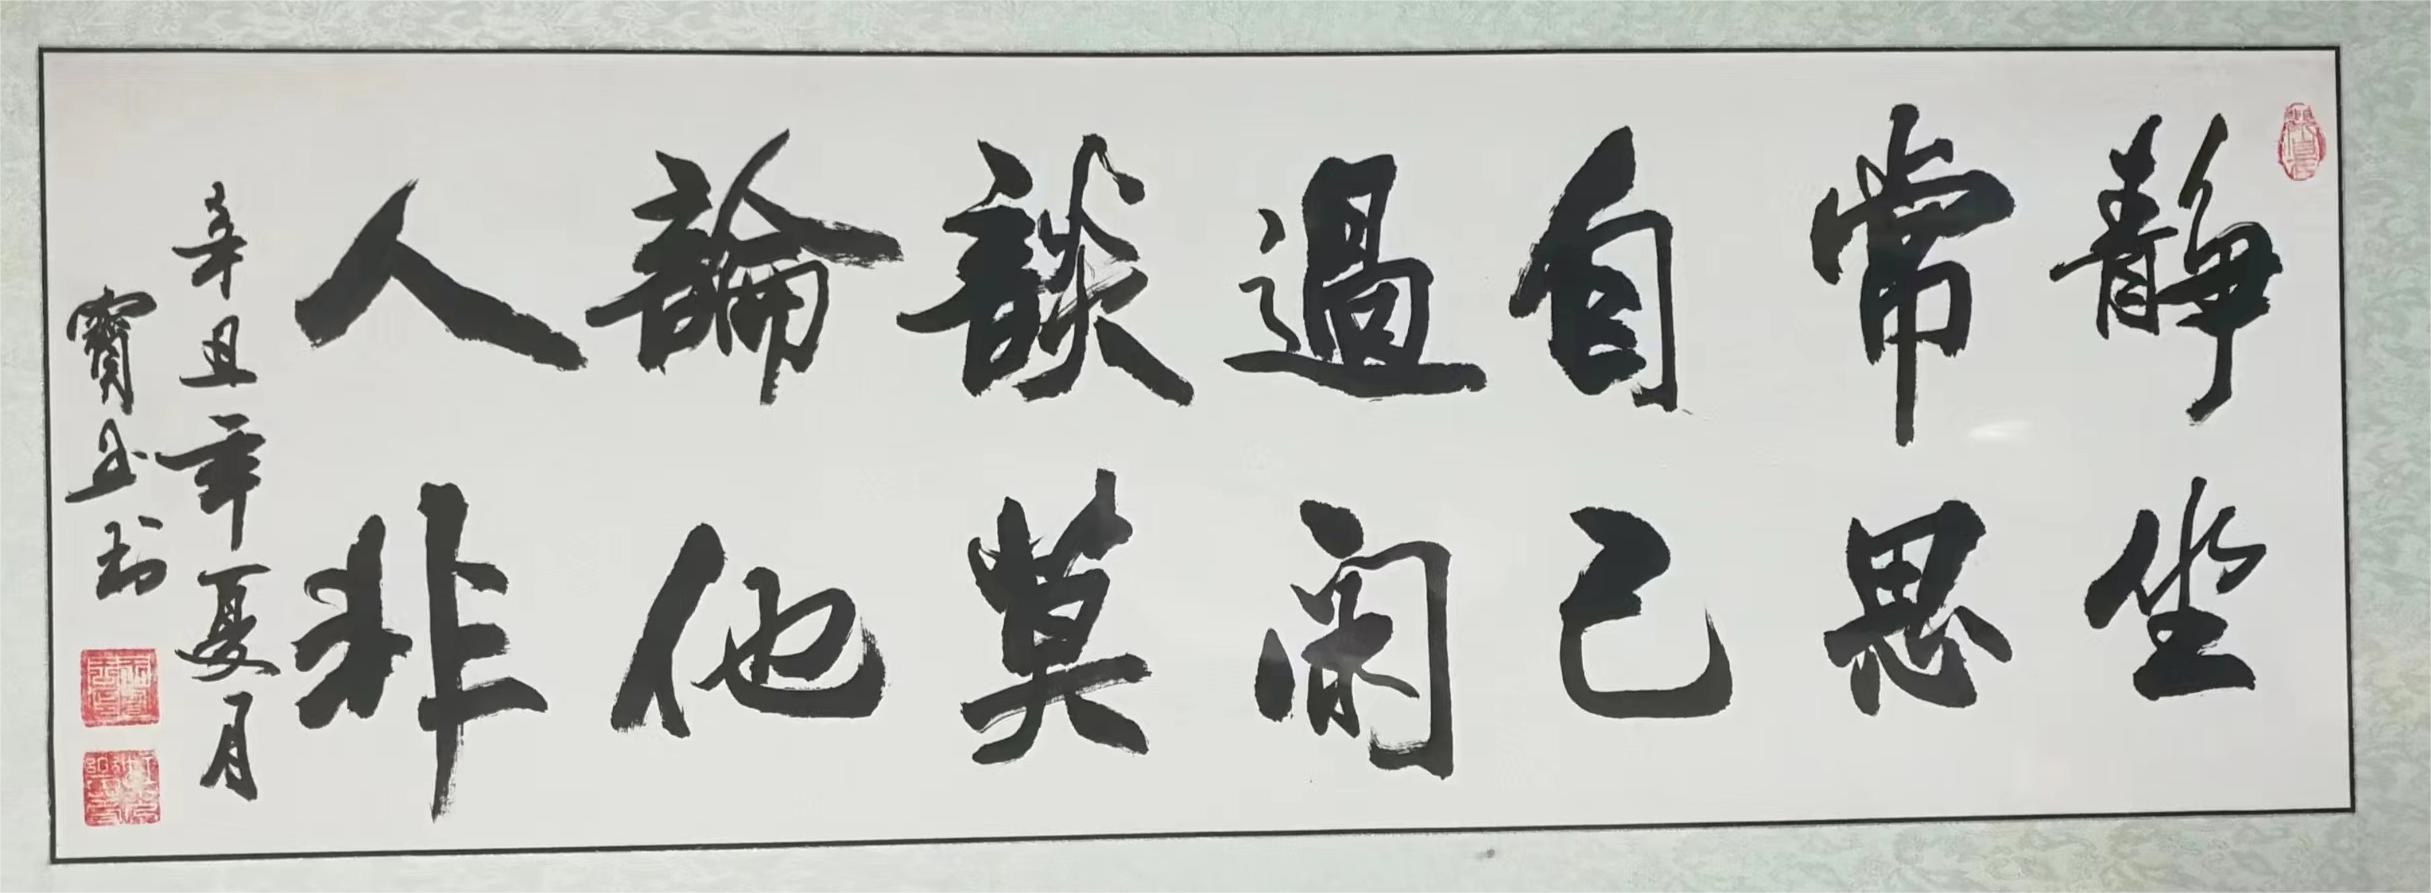 靜坐
常思
自己
過闲
談莫
論他
人非
辛丑年夏月
寶